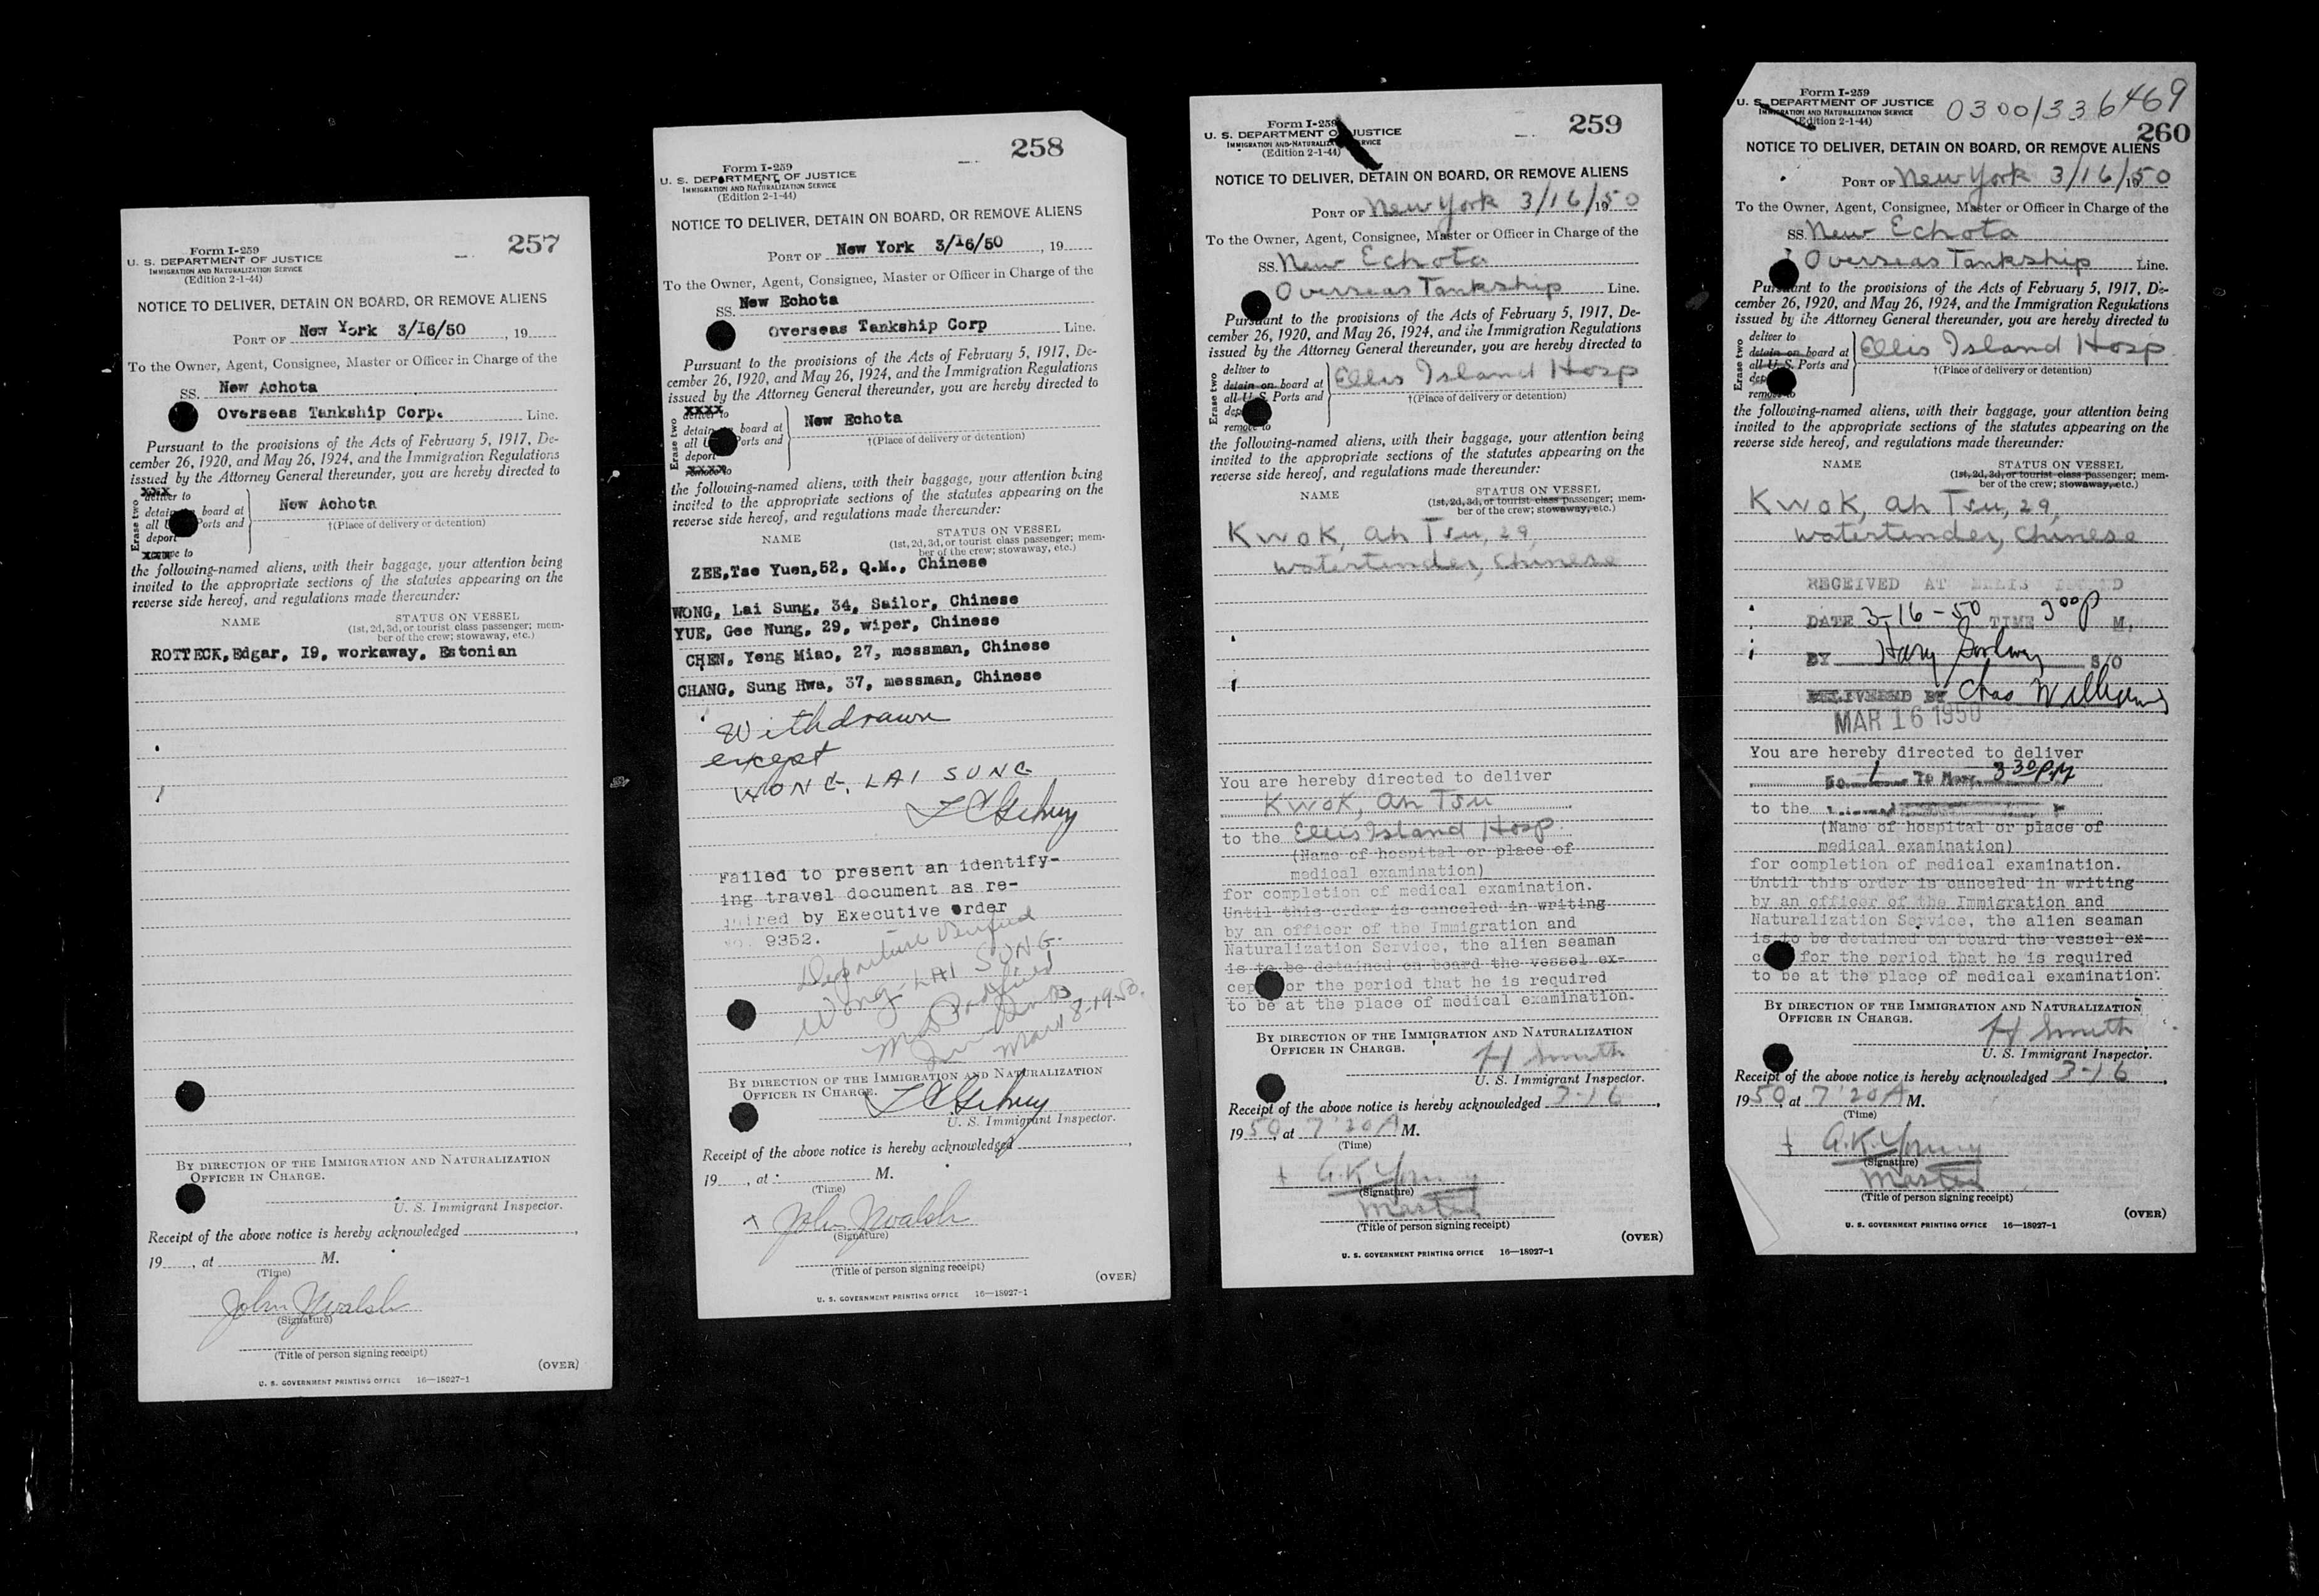 257
Form I-259
U. S. DEPARTMENT OF JUSTICE
IMMIGRATION AND NATURALIZATION SERVICE
(Edition 2-1-44)
NOTICE TO DELIVER, DETAIN ON BOARD, OR REMOVE ALIENS
PORT OF New York 3/16/50, 19
To the Owner, Agent, Consignee, Master or Officer in Charge of the
SS. New Achota
Overseas Tankship Corp. Line.
Pursuant to the provisions of the Acts of February 5, 1917, De-
cember 26, 1920, and May 26, 1924, and the Immigration Regulations
issued by the Attorney General thereunder, you are hereby directed to
Erase two
deliver to
detain on board at
all U Ports and
deport
remove to
New Achota
†(Place of delivery or detention)
the following-named aliens, with their baggage, your attention being
invited to the appropriate sections of the statutes appearing on the
reverse side hereof, and regulations made thereunder:
NAME STATUS ON VESSEL
(1st, 2d, 3d, or tourist class passenger; mem-
ber of the crew; stowaway, etc.)
ROTTECK, Edgar, I9, workaway, Estonian
BY DIRECTION OF THE IMMIGRATION AND NATURALIZATION
OFFICER IN CHARGE.
U. S. Immigrant Inspector.
Receipt of the above notice is hereby acknowledged
19, at M.
(Time)
John J Walsh
(Signature)
(Title of person signing receipt)
(OVER)
U. S. GOVERNMENT PRINTING OFFICE 16—18027-1
258
Form I-259
U. S. DEPARTMENT OF JUSTICE
IMMIGRATION AND NATURALIZATION SERVICE
(Edition 2-1-44)
NOTICE TO DELIVER, DETAIN ON BOARD, OR REMOVE ALIENS
PORT OF New York 3/16/50, 19
To the Owner, Agent, Consignee, Master or Officer in Charge of the
SS. New Echota
Overseas Tankship Corp Line.
Pursuant to the provisions of the Acts of February 5, 1917, De-
cember 26, 1920, and May 26, 1924, and the Immigration Regulations
issued by the Attorney General thereunder, you are hereby directed to
Erase two
deliver to
detain on board at
all U Ports and
deport
remove to
New Echota
†(Place of delivery or detention)
the following-named aliens, with their baggage, your attention being
invited to the appropriate sections of the statutes appearing on the
reverse side hereof, and regulations made thereunder:
NAME STATUS ON VESSEL
(1st, 2d, 3d, or tourist class passenger; mem-
ber of the crew; stowaway, etc.)
ZEE, Tse Yuen, 52, Q.M., Chinese
WONG, Lai Sung, 34, Sailor, Chinese
YUE, Gee Nung, 29, wiper, Chinese
CHEN, Yeng Miao, 27, messman, Chinese
CHANG, Sung Hwa, 37, messman, Chinese
Withdrawn
except
WONG, LAI SUNG
Failed to present an identify-
ing travel document as re-
quired by Executive order
No. 9352.
Departure Verified
Wong LAI SUNG
Mar 18-1950.
BY DIRECTION OF THE IMMIGRATION AND NATURALIZATION
OFFICER IN CHARGE.
U. S. Immigrant Inspector.
Receipt of the above notice is hereby acknowledged
19, at M.
(Time)
John J Walsh
(Signature)
(Title of person signing receipt)
(OVER)
U. S. GOVERNMENT PRINTING OFFICE 16—18027-1
259
Form I-259
U. S. DEPARTMENT OF JUSTICE
IMMIGRATION AND NATURALIZATION SERVICE
(Edition 2-1-44)
NOTICE TO DELIVER, DETAIN ON BOARD, OR REMOVE ALIENS
PORT OF New York 3/16/1950
To the Owner, Agent, Consignee, Master or Officer in Charge of the
SS. New Echota
Overseas Tankship Line.
Pursuant to the provisions of the Acts of February 5, 1917, De-
cember 26, 1920, and May 26, 1924, and the Immigration Regulations
issued by the Attorney General thereunder, you are hereby directed to
Erase two
deliver to
detain on board at
all U. S. Ports and
dep
remove to
Ellis Island Hosp
†(Place of delivery or detention)
the following-named aliens, with their baggage, your attention being
invited to the appropriate sections of the statutes appearing on the
reverse side hereof, and regulations made thereunder:
NAME STATUS ON VESSEL
(1st, 2d, 3d, or tourist class passenger; mem-
ber of the crew; stowaway, etc.)
Kwok, Ah Tsu, 29,
Watertender, Chinese
You are hereby directed to deliver
Kwok, Ah Tsu
to the Ellis Island Hosp.
(Name of hospital or place of
medical examination)
for completion of medical examination.
Until this order is canceled in writing
by an officer of the Immigration and
Naturalization Service, the alien seaman
is to be detained on board the vessel ex-
cept for the period that he is required
to be at the place of medical examination.
BY DIRECTION OF THE IMMIGRATION AND NATURALIZATION
OFFICER IN CHARGE.
H Smith
U. S. Immigrant Inspector.
Receipt of the above notice is hereby acknowledged 3-16,
1950, at 7:20 A M.
(Time)
G.K. Young
(Signature)
Master
(Title of person signing receipt)
(OVER)
U. S. GOVERNMENT PRINTING OFFICE 16—18027-1
0300/336469
260
Form I-259
U. S. DEPARTMENT OF JUSTICE
IMMIGRATION AND NATURALIZATION SERVICE
(Edition 2-1-44)
NOTICE TO DELIVER, DETAIN ON BOARD, OR REMOVE ALIENS
PORT OF New York 3/16/1950
To the Owner, Agent, Consignee, Master or Officer in Charge of the
SS. New Echota
Overseas Tankship Line.
Pursuant to the provisions of the Acts of February 5, 1917, De-
cember 26, 1920, and May 26, 1924, and the Immigration Regulations
issued by the Attorney General thereunder, you are hereby directed to
Erase two
deliver to
detain on board at
all U. S. Ports and
dep
remove to
Ellis Island Hosp
†(Place of delivery or detention)
the following-named aliens, with their baggage, your attention being
invited to the appropriate sections of the statutes appearing on the
reverse side hereof, and regulations made thereunder:
NAME STATUS ON VESSEL
(1st, 2d, 3d, or tourist class passenger; mem-
ber of the crew; stowaway, etc.)
Kwok, Ah Tsu, 29,
Watertender, Chinese
RECEIVED AT ELLIS ISLAND
DATE 3-16-50 TIME 3 00 P M.
BY Harry S/O
DELIVERED BY Chas Williams
MAR 16 1950
You are hereby directed to deliver
3 30 PM
to the
(Name of hospital or place of
medical examination)
for completion of medical examination.
Until this order is canceled in writing
by an officer of the Immigration and
Naturalization Service, the alien seaman
is to be detained on board the vessel ex-
c for the period that he is required
to be at the place of medical examination.
BY DIRECTION OF THE IMMIGRATION AND NATURALIZATION
OFFICER IN CHARGE.
H Smith
U. S. Immigrant Inspector.
Receipt of the above notice is hereby acknowledged 3-16,
1950, at 7:20 A M.
(Time)
G.K. Young
(Signature)
Master
(Title of person signing receipt)
(OVER)
U. S. GOVERNMENT PRINTING OFFICE 16—18027-1